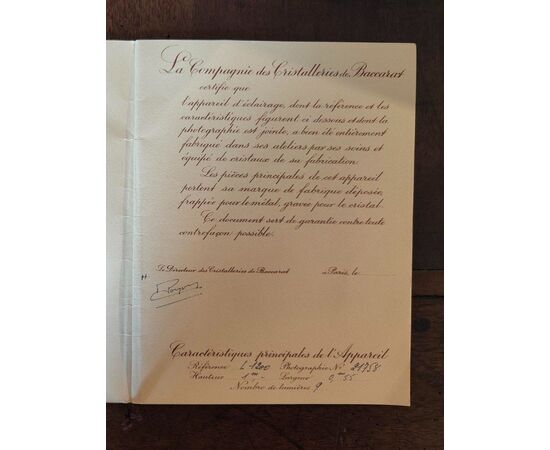 La Compagnie des Cristalleries de Baccarat
certifie que
l'appareil d'éclairage, dont la référence et les
caractéristiques figurent ci dessous et dont la
photographie est jointe, a bien été entièrement
fabriqué dans ses ateliers par ses soins et
équipé de cristaux de sa fabrication.
Les pièces principales de cet appareil
portent sa marque de fabrique déposée,
frappée pour le métal, gravée pour le cristal.
Ce document sert de garantie contre toute
contrefaçon possible.
Le Directeur des Cristalleries de Baccarat à Paris, le
Caractéristiques principales de l'Appareil
Référence L-1200 Photographie No 21758
Hauteur 1,m - Largeur 0,m 55
Nombre de lumières 9